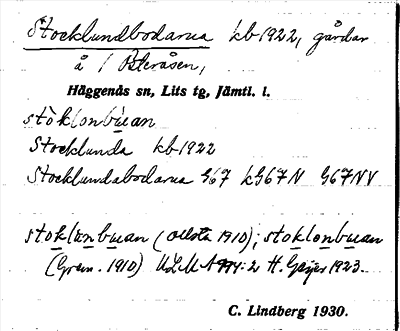 Stocklundbodarna kb 1922, gårdar
å / Österåsen,
Häggenås sn, Lits tg, Jämtl. l.
stòklonbu̇an
Stocklunda kb 1922
Stocklundabodarna G67 LG67N G67NV
(ollsta 1910); stoklonbuan
(Gran. 1910) ULMA 2 H. Geijer 1923.
C. Lindberg 1930.